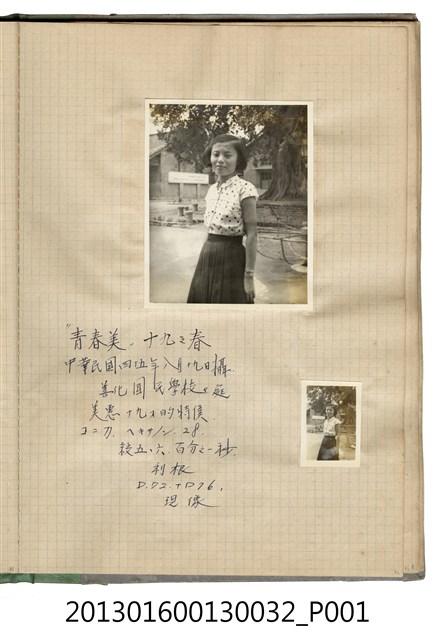 "青春美, 十九之春
中華民國四五年八月十九日攝
善化國民學校之庭
美惠十九才的時候
コニカ. ヘキサノン. 2.8.
絞五·六. 百分之一秒.
利根
D.72.+D76,
現像
201301600130032_P001